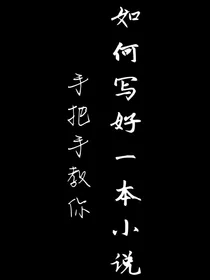 如何写好一本小说
手把手教你